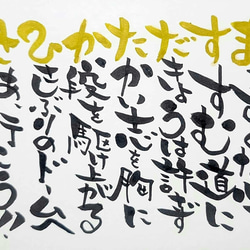 すすむ道に
だきょうは許ず
たかい志を胸に
か段を駆け上がる
ひさしぶりのドームへ
さあ、行こう!!